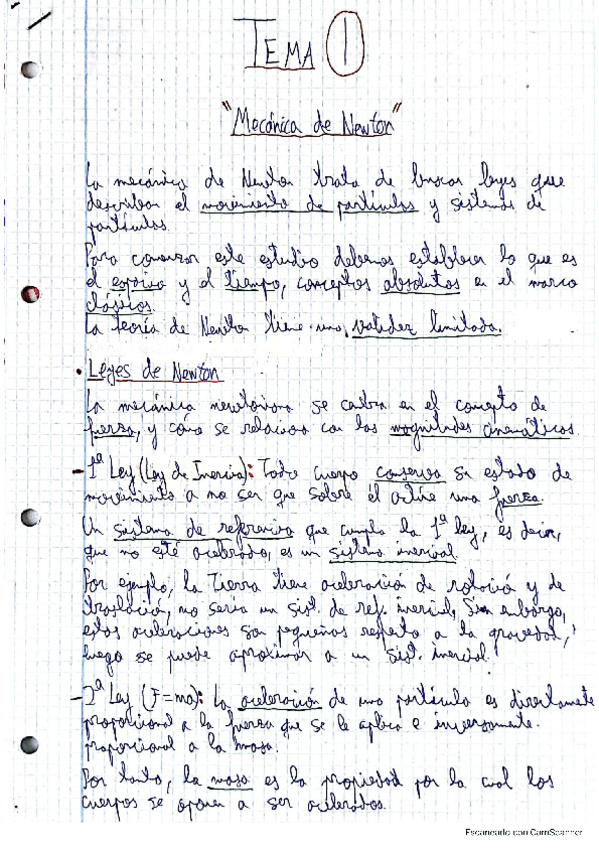 TEMA 1
"Mecánica de Newton"
La mecánica de Newton trata de buscar leyes que
describan el movimiento de partículas y sistemas de
partículas.
Para comenzar este estudio debemos establecer lo que es
el espacio y el tiempo, conceptos absolutos en el marco
clásicos.
La teoría de Newton tiene una validez limitada.
• Leyes de Newton
La mecánica newtoniana se centra en el concepto de
fuerza, y cómo se relaciona con las magnitudes cinemáticas.
- 1ª Ley (Ley de Inercia): Todo cuerpo conserva su estado de
movimiento a no ser que sobre él actúe una fuerza.
Un sistema de referencia que cumpla la 1ª ley, es decir,
que no esté acelerado, es un sistema inercial.
Por ejemplo, la Tierra tiene aceleración de rotación y de
traslación, no sería un sist. de ref. inercial. Sin embargo,
estas aceleraciones son pequeñas respecto a la gravedad,
luego se puede aproximar a un sist. inercial.
- 2ª Ley (F=ma): La aceleración de una partícula es directamente
proporcional a la fuerza que se le aplica e inversamente
proporcional a la masa.
Por tanto, la masa es la propiedad por la cual los
cuerpos se oponen a ser acelerados.
Escaneado con CamScanner